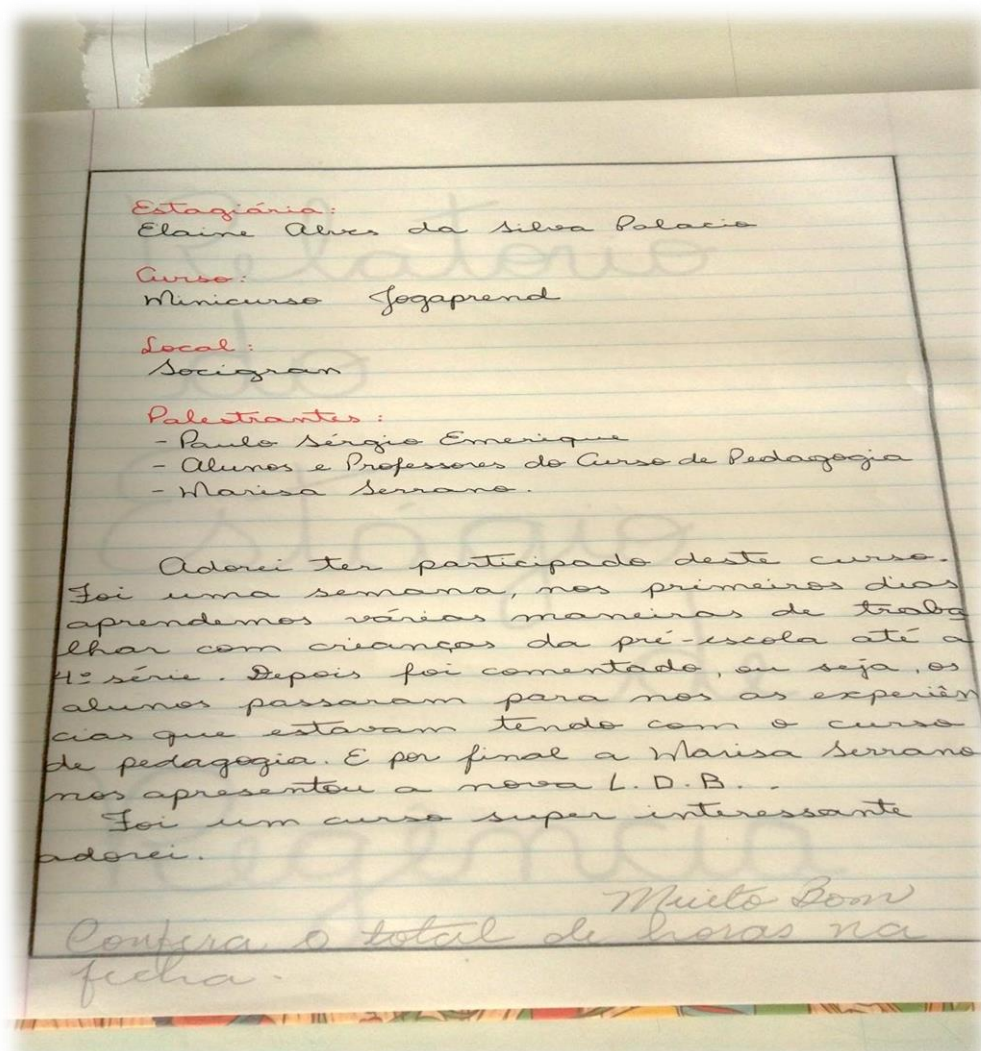 Estagiária:
Elaine Alves da Silva Palacio
Curso:
Minicurso Jogaprend
Local:
Socigran
Palestrantes:
- Paulo Sérgio Emerique
- Alunos e Professores do Curso de Pedagogia
- Marisa Serrano.
Adorei ter participado deste curso.
Foi uma semana, nos primeiros dias
aprendemos várias maneiras de traba
lhar com crianças da pré-escola até a
4ª série. Depois foi comentado, ou seja, os
alunos passaram para nos as experiên
cias que estavam tendo com o curso
de pedagogia. E por final a Marisa Serrano
nos apresentou a nova L.D.B..
Foi um curso super interessante
adorei.
Muito Bom
Confira o total de horas na
ficha.
Relatório
do
Estágio
de
Regência